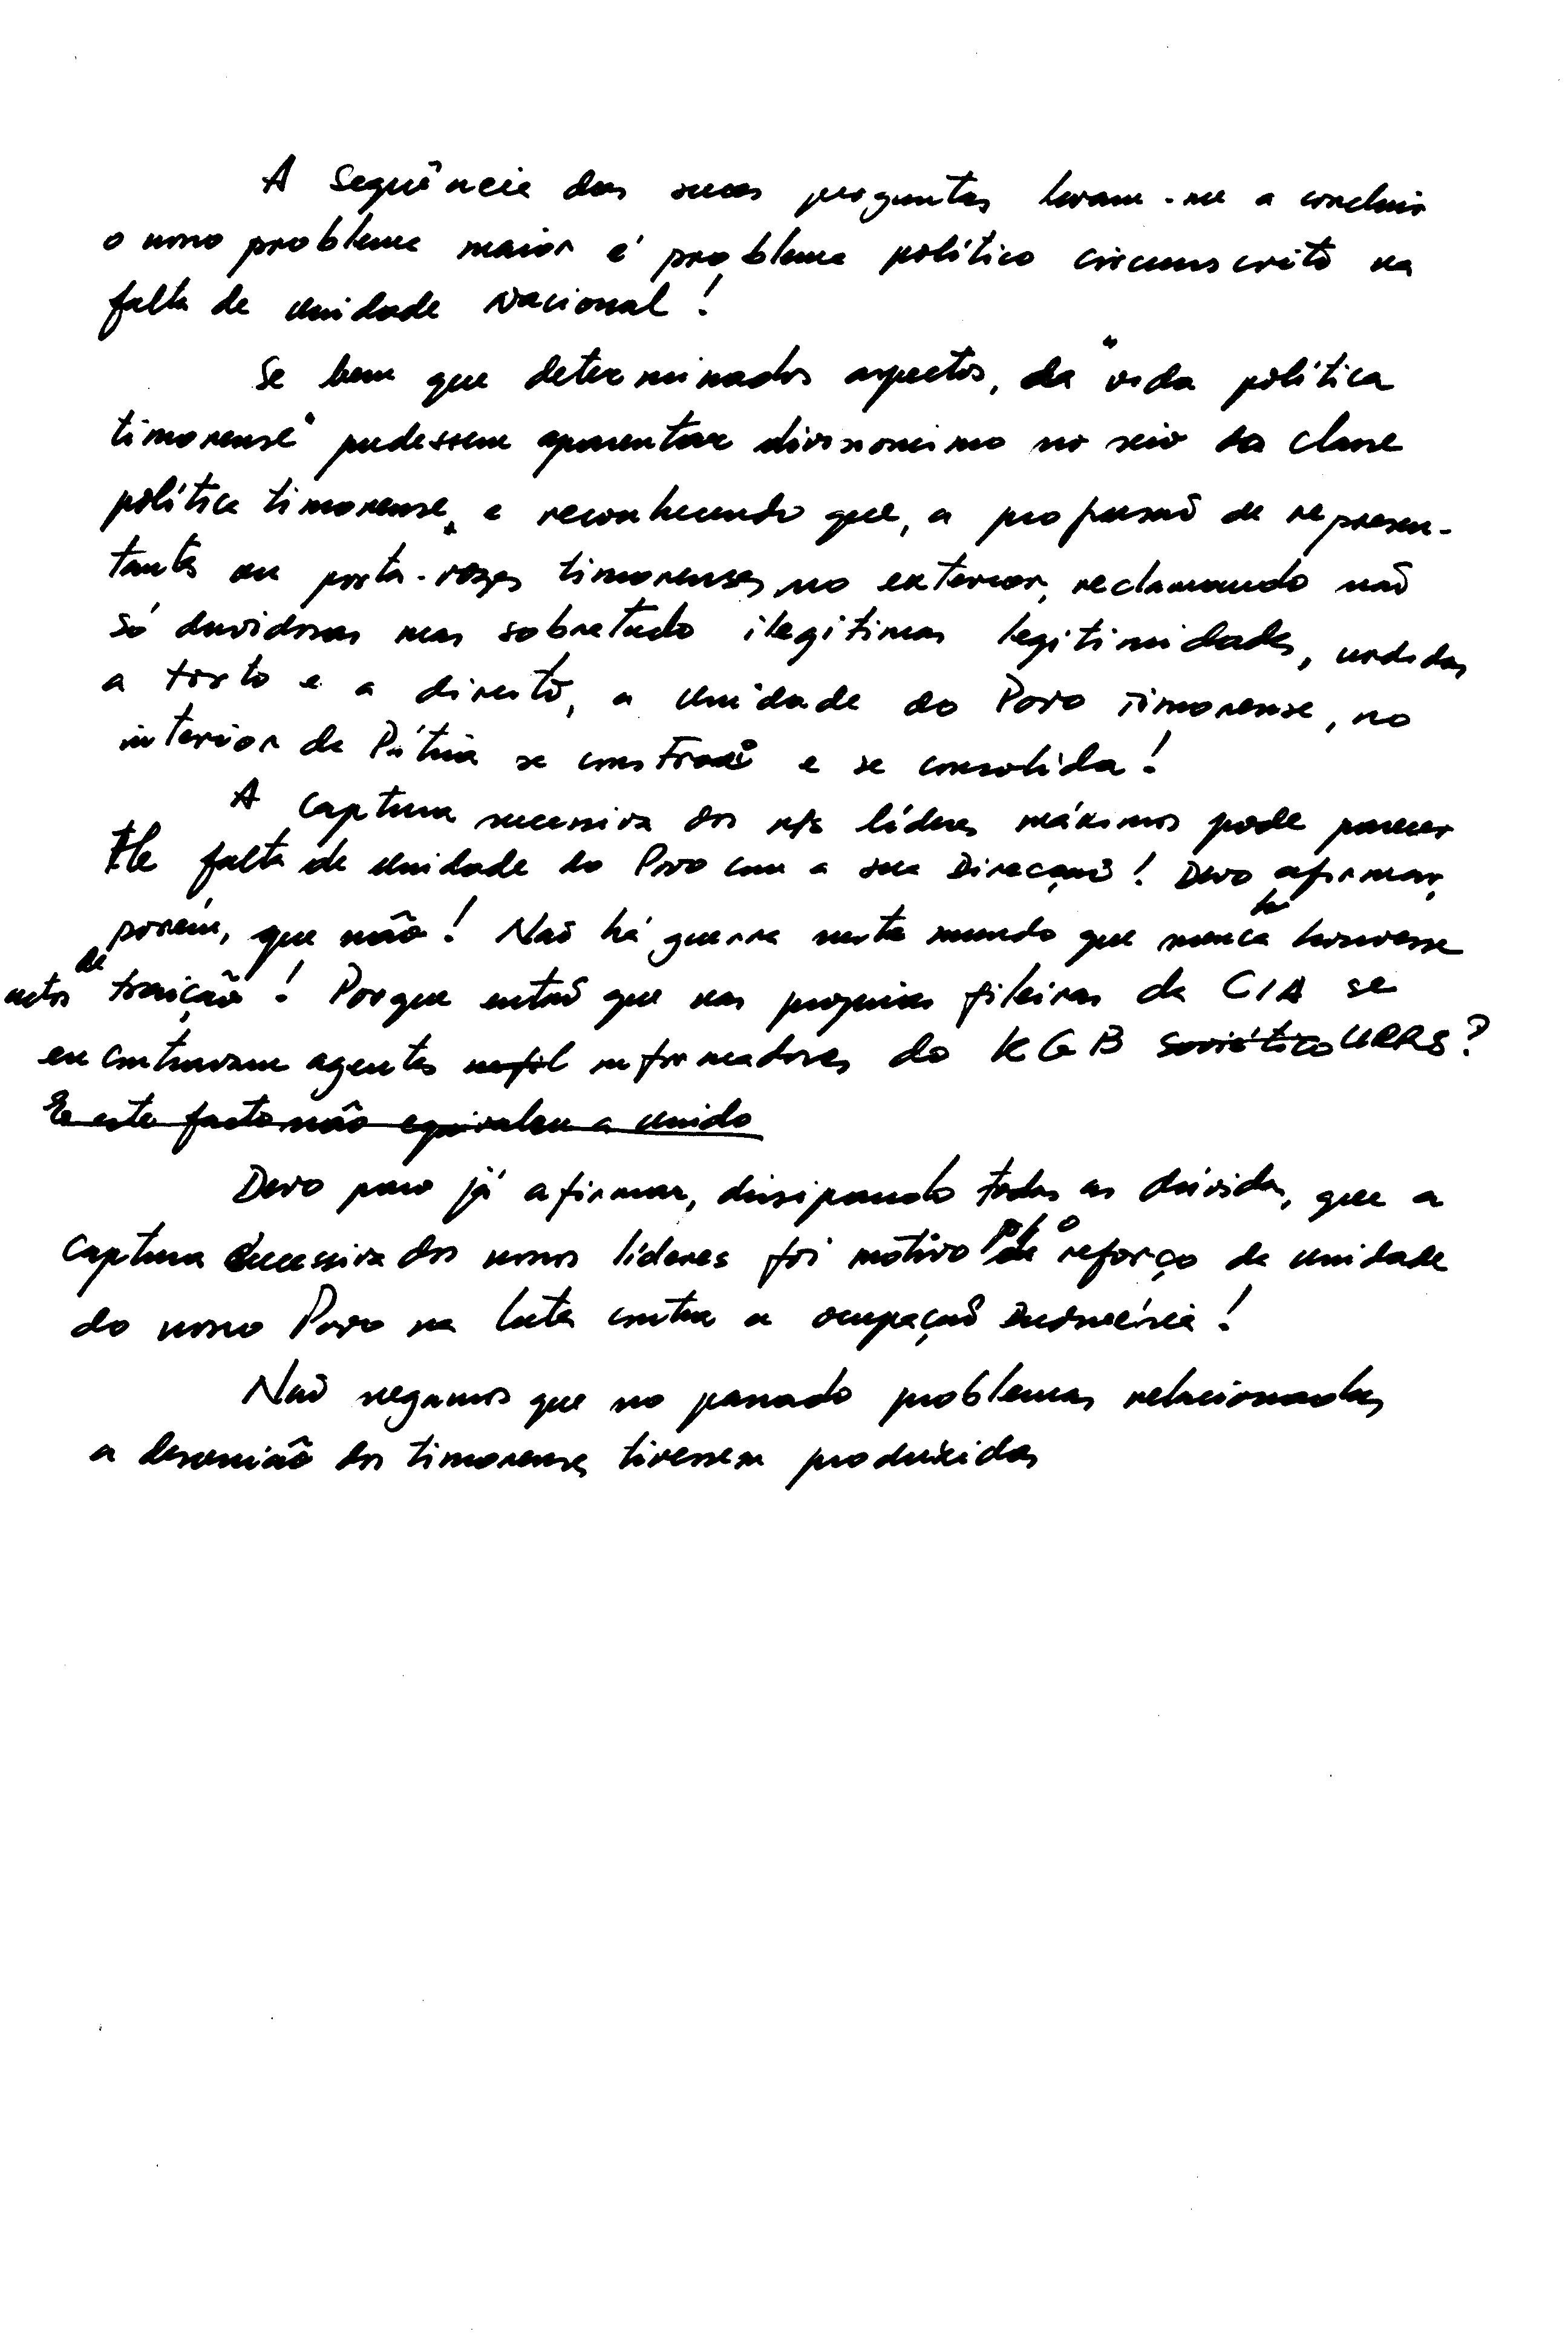 A sequência das suas perguntas levam-me a concluir
o nosso problema maior é problema político circunscrito na
falta de unidade Nacional!
Se bem que determinados aspectos, da "vida política
timorense" pudessem aparentar divisionismo no seio da classe
política timorense, e reconhecendo que, a profusão de represen-
tantes ou porta-vozes timorenses no exterior, reclamando não
só duvidosas mas sobretudo ilegitimas legitimidades, urdidas
a torto e a direito, a unidade do Povo Timorense, no
interior da Pátria se constroi e se consolida!
A captura sucessiva dos n/s líderes máximos pode parecer
falta de unidade do Povo com a sua Direcção! Devo afirmar,
porém, que não! Não há guerra neste mundo que nunca houvesse
actos de traição! Porque então que nas proprias fileiras da CIA se
encontravam agentes informadores do KGB soviético URRS?
E este facto não equivaleu a unido
Devo para já afirmar, dissipando todas as dúvidas, que a
captura sucessiva dos nossos líderes foi motivo p/ o reforço da unidade
do nosso Povo na luta contra a ocupação Indonésia!
Não negamos que no passado problemas relacionados
a desunião dos timorenses tivessem produzidos